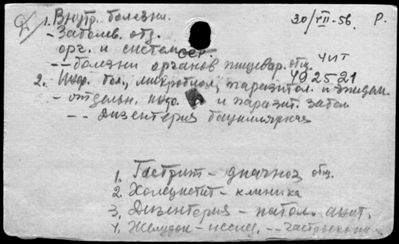 1. Внутр. болезни. 20/VII-56. Р.
- Заболев. отд.
орг. и систем
-- болезни органов пищевар. отд. чит
2. Инф. бол., микробиол., паразитол. и эпидем. 492521
- отдельн. инф. и паразит. забол
-- дизентерия бациллярная
1. Гастрит - диагноз отд.
2. Холецистит - клиника
3. Дизентерия - патол. анат.
4. Желудок - исслед. --